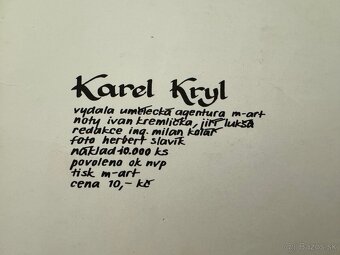 Karel Kryl
vydala umělecká agentura m-art
noty ivan kremlička, jiří lukša
redakce ing. milan kolář
foto herbert slavík
náklad 10.000 ks
povoleno ok nvp
tisk m-art
cena 10,- kč
Bazos.sk